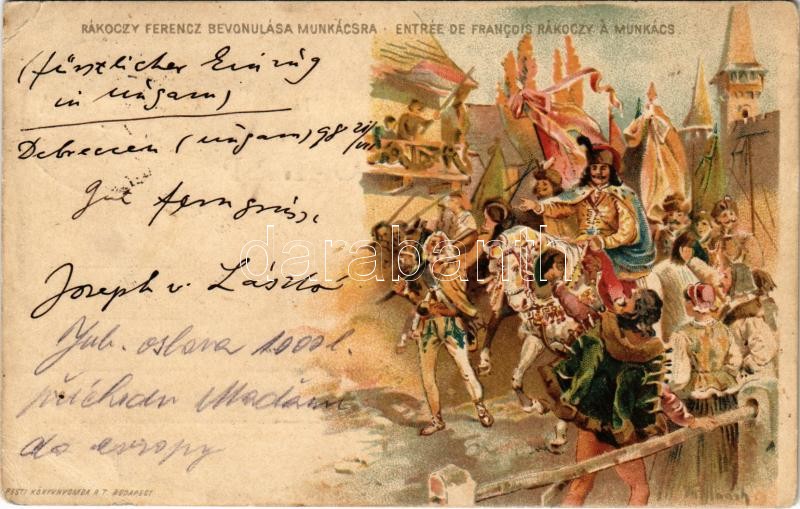 RÁKÓCZY FERENCZ BEVONULÁSA MUNKÁCSRA · ENTRÉE DE FRANÇOIS RÁKÓCZY À MUNKÁCS
(fürstlicher Einzug
in Ungarn)
Debreczen (Ungarn) 98 21/VII
Gut
Joseph v. László
Jub. oslava 1000 l.
příchodu Maďarů
do evropy
darabanth
PESTI KÖNYVNYOMDA R.T. BUDAPEST